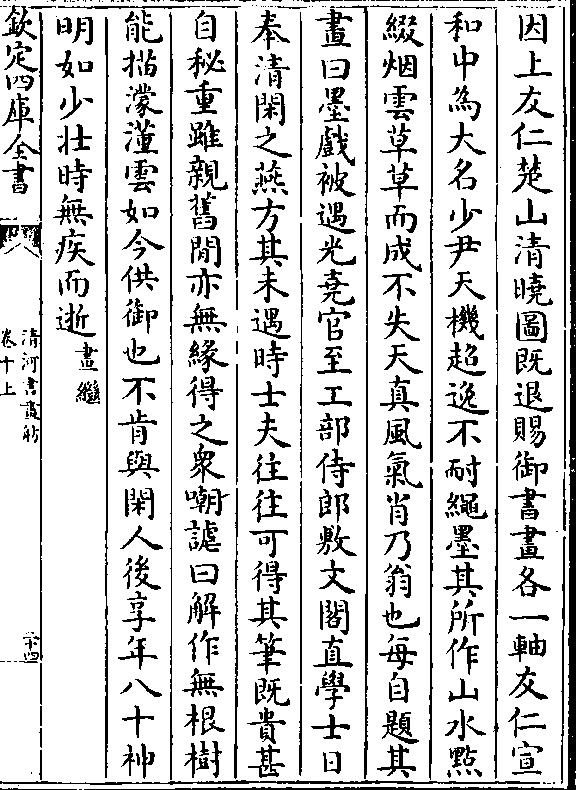 因上友仁楚山清曉圖既退賜御書畫各一軸友仁宣
和中為大名少尹天機超逸不耐繩墨其所作山水㸃
綴烟雲草草而成不失天真風氣肖乃翁也每自題其
畫曰墨戲被遇光堯官至工部侍郎敷文閣直學士日
奉清閑之燕方其未遇時士夫往往可得其筆既貴甚
自秘重雖親舊間亦無緣得之衆嘲謔曰解作無根樹
能描濛㵧雲如今供御也不肯與閑人後享年八十神
明如少壯時無疾而逝畫繼
欽定四庫全書
清河書畫舫
卷十上
二十四